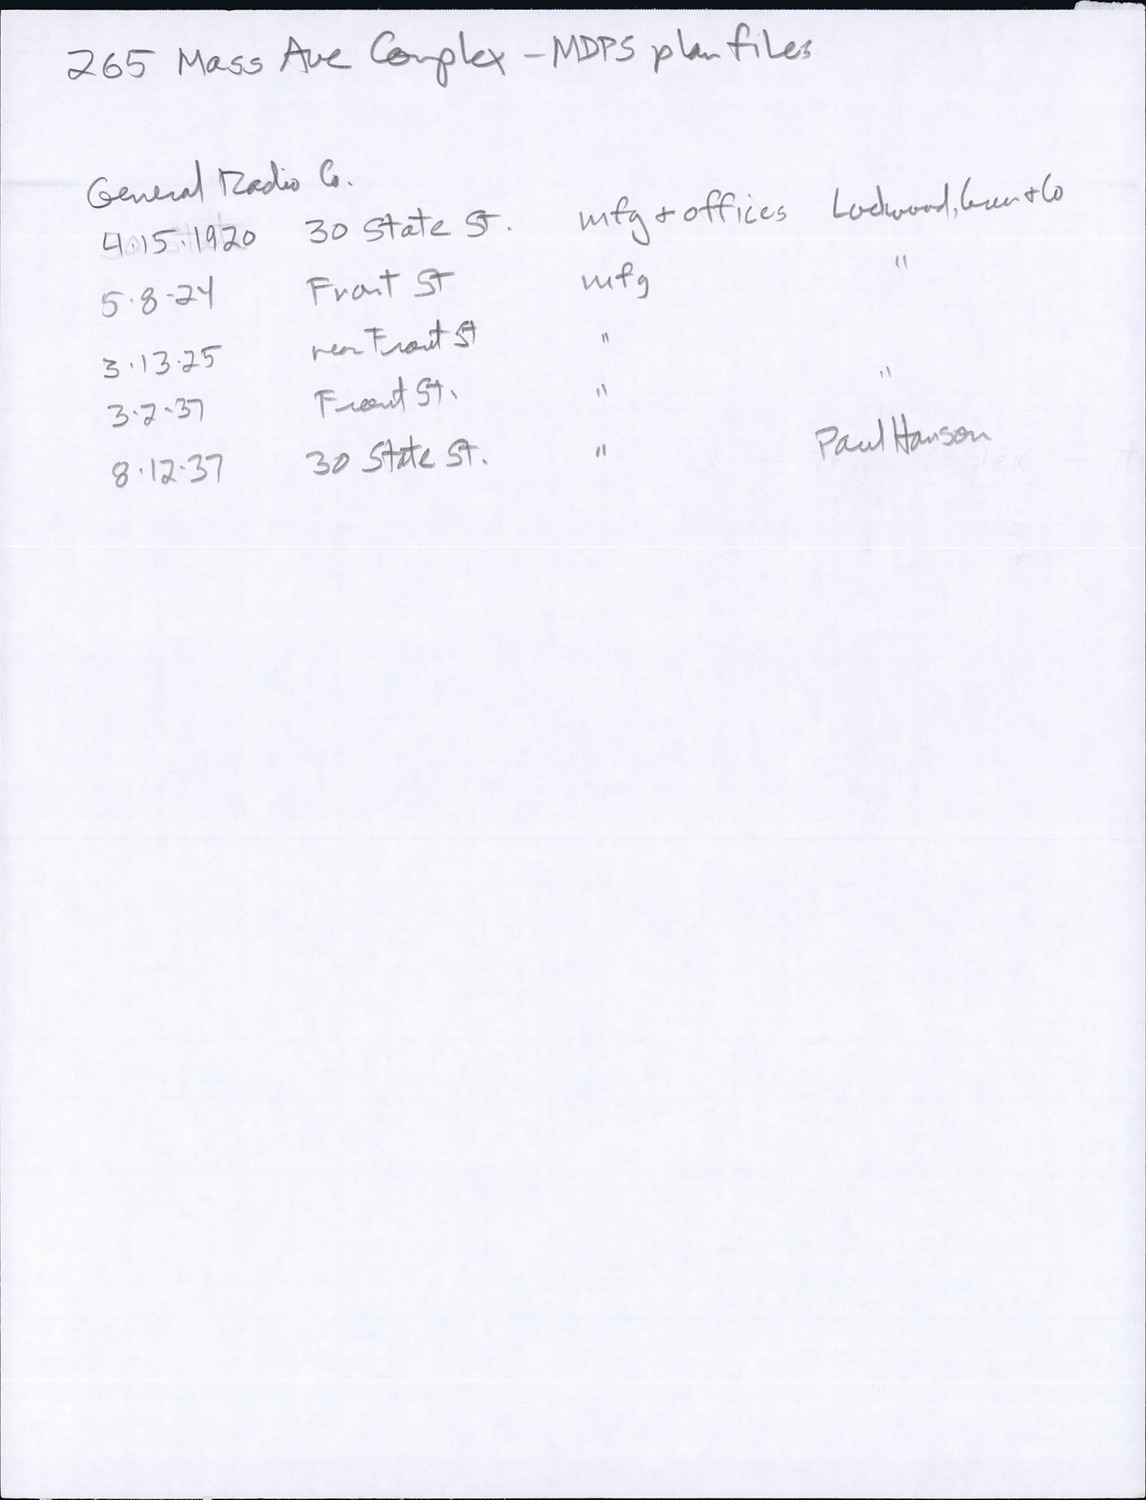 265 Mass Ave Complex – MDPS plan files
General Radio Co.
4.15.1920 30 State St. mfg + offices Lockwood, Greene + Co
5.8-24 Front St mfg "
3.13.25 rear Front St "
3.2.37 Front St. " "
8.12.37 30 State St. " Paul Hanson